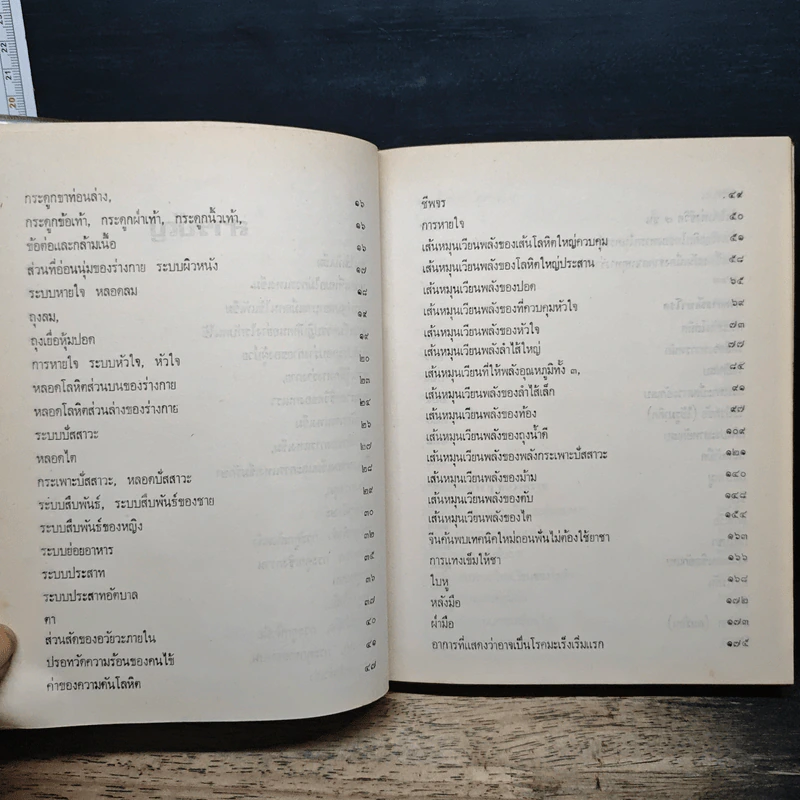 กระดูกขาท่อนล่าง, ๑๖
กระดูกข้อเท้า, กระดูกฝ่าเท้า, กระดูกนิ้วเท้า, ๑๖
ข้อต่อและกล้ามเนื้อ ๑๖
ส่วนที่อ่อนนุ่มของร่างกาย ระบบผิวหนัง ๑๗
ระบบหายใจ หลอดลม ๑๘
ถุงลม, ๑๙
ถุงเยื่อหุ้มปอด ๑๙
การหายใจ ระบบหัวใจ, หัวใจ ๒๐
หลอดโลหิตส่วนบนของร่างกาย ๒๓
หลอดโลหิตส่วนล่างของร่างกาย ๒๔
ระบบปัสสาวะ ๒๖
หลอดไต ๒๗
กระเพาะปัสสาวะ, หลอดปัสสาวะ ๒๘
ระบบสืบพันธ์, ระบบสืบพันธ์ของชาย ๒๙
ระบบสืบพันธ์ของหญิง ๓๐
ระบบย่อยอาหาร ๓๒
ระบบประสาท ๓๕
ระบบประสาทอัตบาล ๓๖
ตา ๓๗
ส่วนลัดของอวัยวะภายใน ๔๐
ปรอทวัดความร้อนของคนไข้ ๔๑
ค่าของความดันโลหิต ๔๗
ชีพจร ๔๙
การหายใจ ๕๐
เส้นหมุนเวียนพลังของเส้นโลหิตใหญ่ควบคุม ๕๑
เส้นหมุนเวียนพลังของโลหิตใหญ่ประสาน ๕๘
เส้นหมุนเวียนพลังของปอด ๖๕
เส้นหมุนเวียนพลังของที่ควบคุมหัวใจ ๖๙
เส้นหมุนเวียนพลังของหัวใจ ๗๓
เส้นหมุนเวียนพลังลำไส้ใหญ่ ๗๗
เส้นหมุนเวียนที่ให้พลังอุณหภูมิทั้ง ๓, ๘๔
เส้นหมุนเวียนพลังของลำไส้เล็ก ๙๑
เส้นหมุนเวียนพลังของท้อง ๙๗
เส้นหมุนเวียนพลังของถุงน้ำดี ๑๐๙
เส้นหมุนเวียนพลังของพลังกระเพาะปัสสาวะ ๑๒๑
เส้นหมุนเวียนพลังของม้าม ๑๔๐
เส้นหมุนเวียนพลังของตับ ๑๔๘
เส้นหมุนเวียนพลังของไต ๑๕๔
จีนค้นพบเทคนิคใหม่ถอนฟันไม่ต้องใช้ยาชา ๑๖๓
การแทงเข็มให้ชา ๑๖๖
ใบหู ๑๖๘
หลังมือ ๑๗๒
ฝ่ามือ ๑๗๓
อาการที่แสดงว่าอาจเป็นโรคมะเร็งเริ่มแรก ๑๗๕